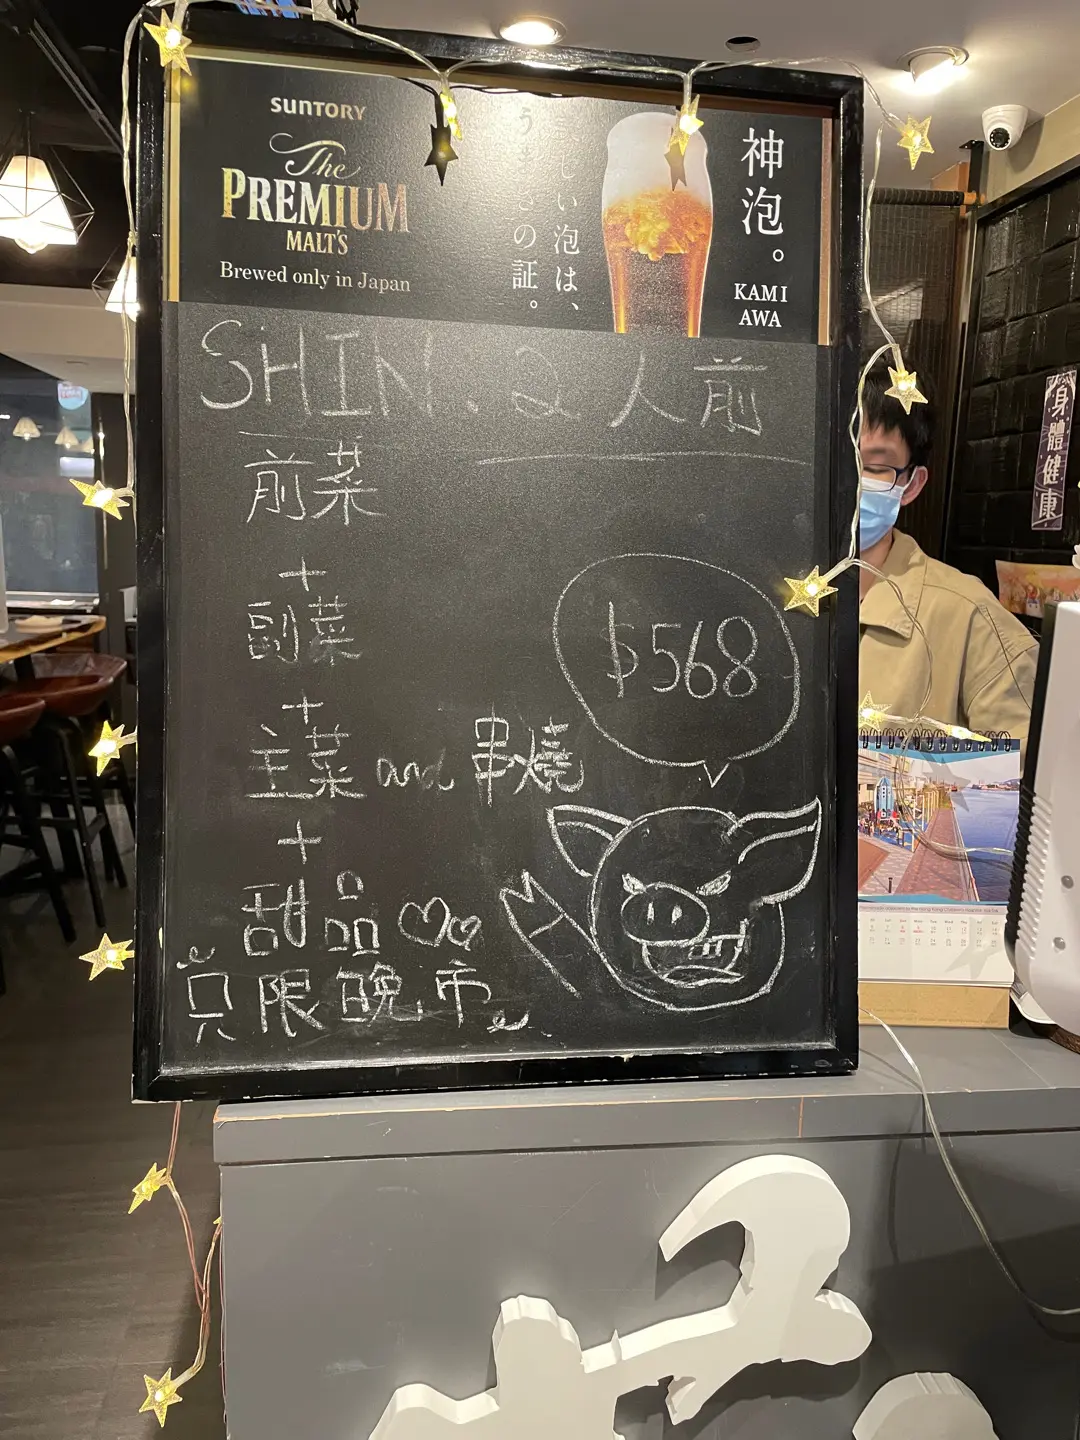 SUNTORY
The
PREMIUM
MALT'S
Brewed only in Japan
しい泡は、
うまさの証。
神泡。
KAMI
AWA
SHIN. 2人前
前菜
+
副菜
+
主菜 and 串燒
+
甜品
只限晚市
$568
身體健康